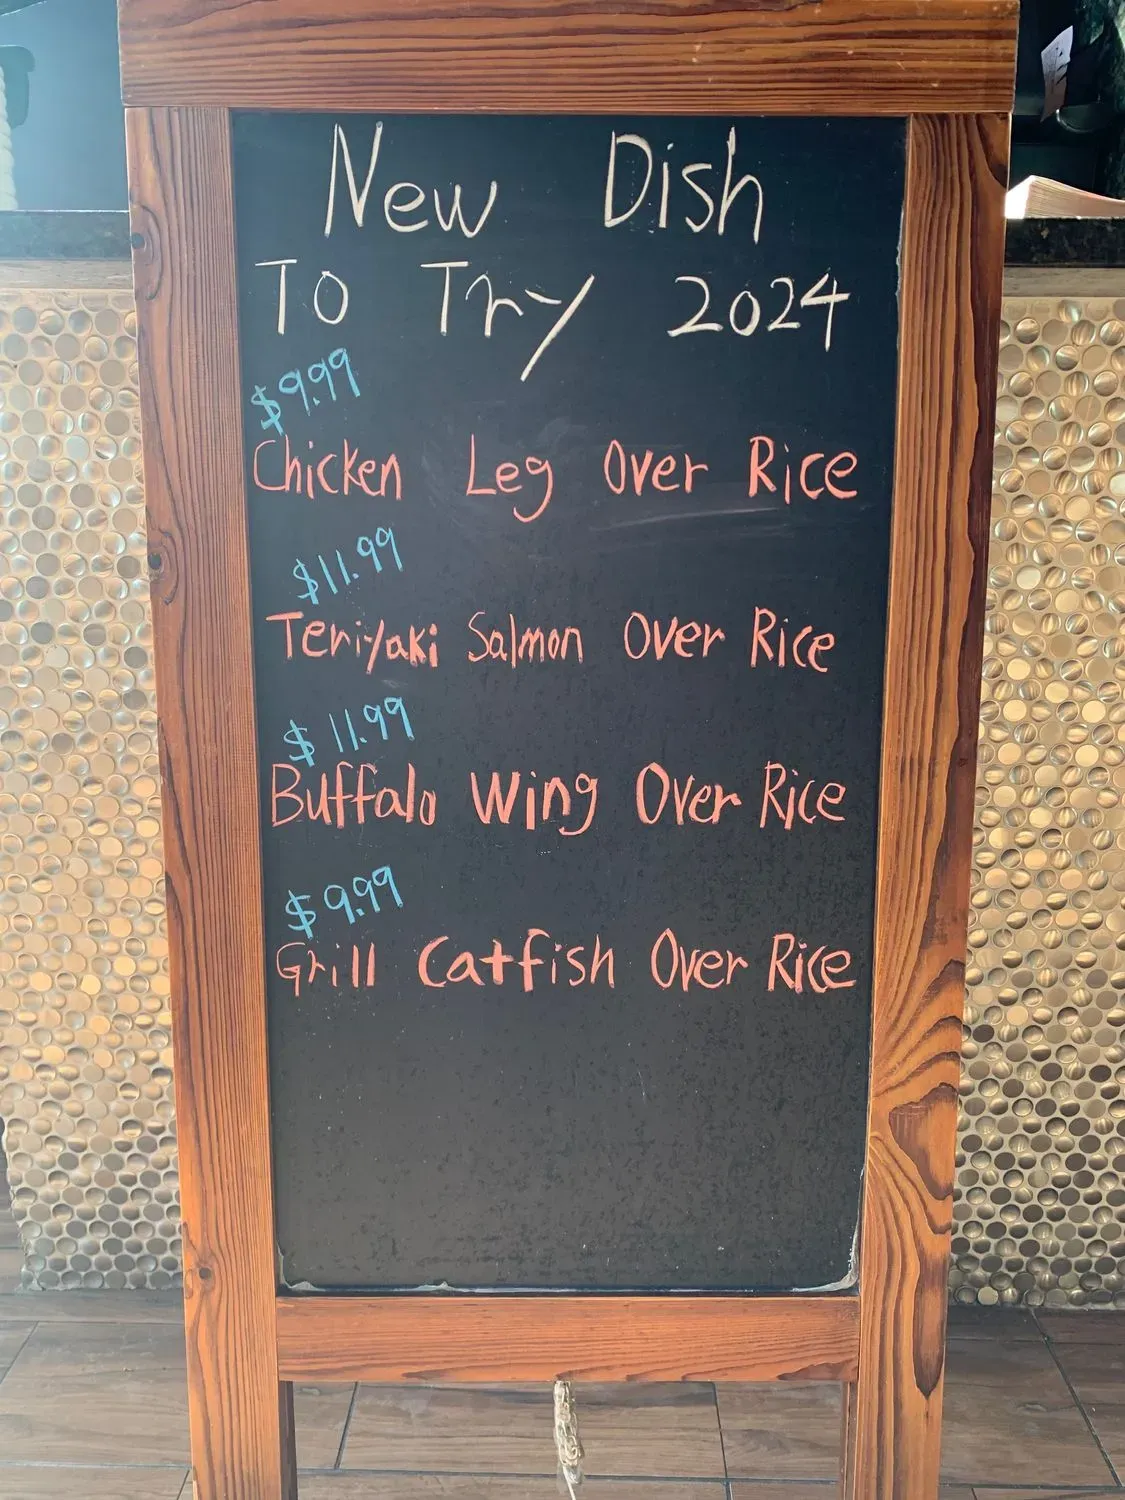 New Dish
To Try 2024
$9.99
Chicken Leg Over Rice
$11.99
Teriyaki Salmon Over Rice
$11.99
Buffalo Wing Over Rice
$9.99
Grill Catfish Over Rice